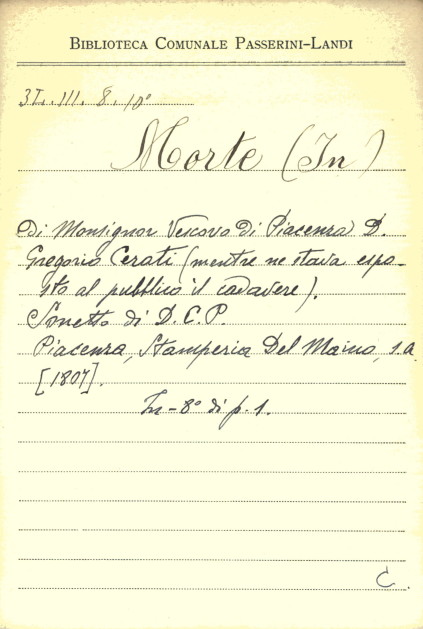 BIBLIOTECA COMUNALE PASSERINI-LANDI
3L.III.8.10°
Morte (In)
Di Monsignor Vescovo di Piacenza D.
Gregorio Cerati (mentre ne stava espo-
sto al pubblico il cadavere).
Sonetto di D.C.P.
Piacenza, Stamperia Del Maino, s.a.
[1807].
In-8° di p. 1.
C.